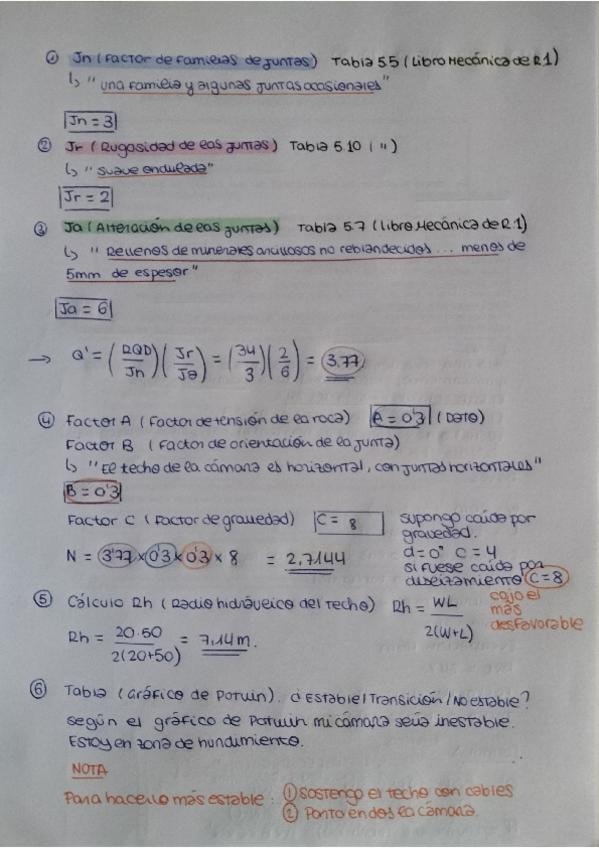 ① Jn (Factor de familias de juntas) Tabla 5.5 (Libro Mecánica de R1)
↳ "una familia y algunas juntas ocasionales"
Jn = 3
② Jr (Rugosidad de las juntas) Tabla 5.10 ( " )
↳ "suave ondulada"
Jr = 2
③ Ja (Alteración de las juntas) Tabla 5.7 (Libro Mecánica de R1)
↳ "Rellenos de minerales arcillosos no reblandecidos ... menos de
5mm de espesor"
Ja = 6
→ Q' = (RQD/Jn)(Jr/Ja) = (34/3)(2/6) = 3,77
④ Factor A (Factor de tensión de la roca) A = 0'3 (Dato)
Factor B (Factor de orientación de la junta)
↳ "El techo de la cámara es horizontal, con juntas horizontales"
B = 0'3
Factor C (Factor de gravedad) C = 8
supongo caída por
gravedad.
d = 0° C = 4
si fuese caída por
deslizamiento C = 8
cojo el
más
desfavorable
N = 3'77 x 0'3 x 0'3 x 8 = 2,7144
⑤ Cálculo Rh (Radio hidráulico del techo) Rh = WL / 2(W+L)
Rh = 20·50 / 2(20+50) = 7,14m.
⑥ Tabla (Gráfico de Potvin). ¿Estable/Transición/No estable?
según el gráfico de Potvin mi cámara sería inestable.
Estoy en zona de hundimiento.
NOTA
Para hacerlo más estable: ① sostengo el techo con cables
② Parto en dos la cámara.